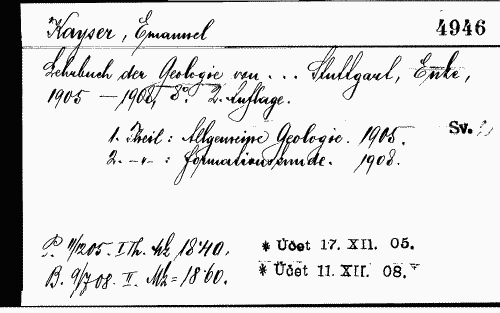 Kayser, Emanuel 4946
Lehrbuch der Geologie von ... Stuttgart, Enke,
1905 — 1908, 8°. 2. Auflage.
1. Theil: Allgemeine Geologie. 1905. Sv.
2. -"- : Formationskunde. 1908.
P. 11/12 05. I Th. Mk 18·40. * Účet 17. XII. 05.
B. 9/7 08. II. Mk = 18·60. * Účet 11. XII. 08.